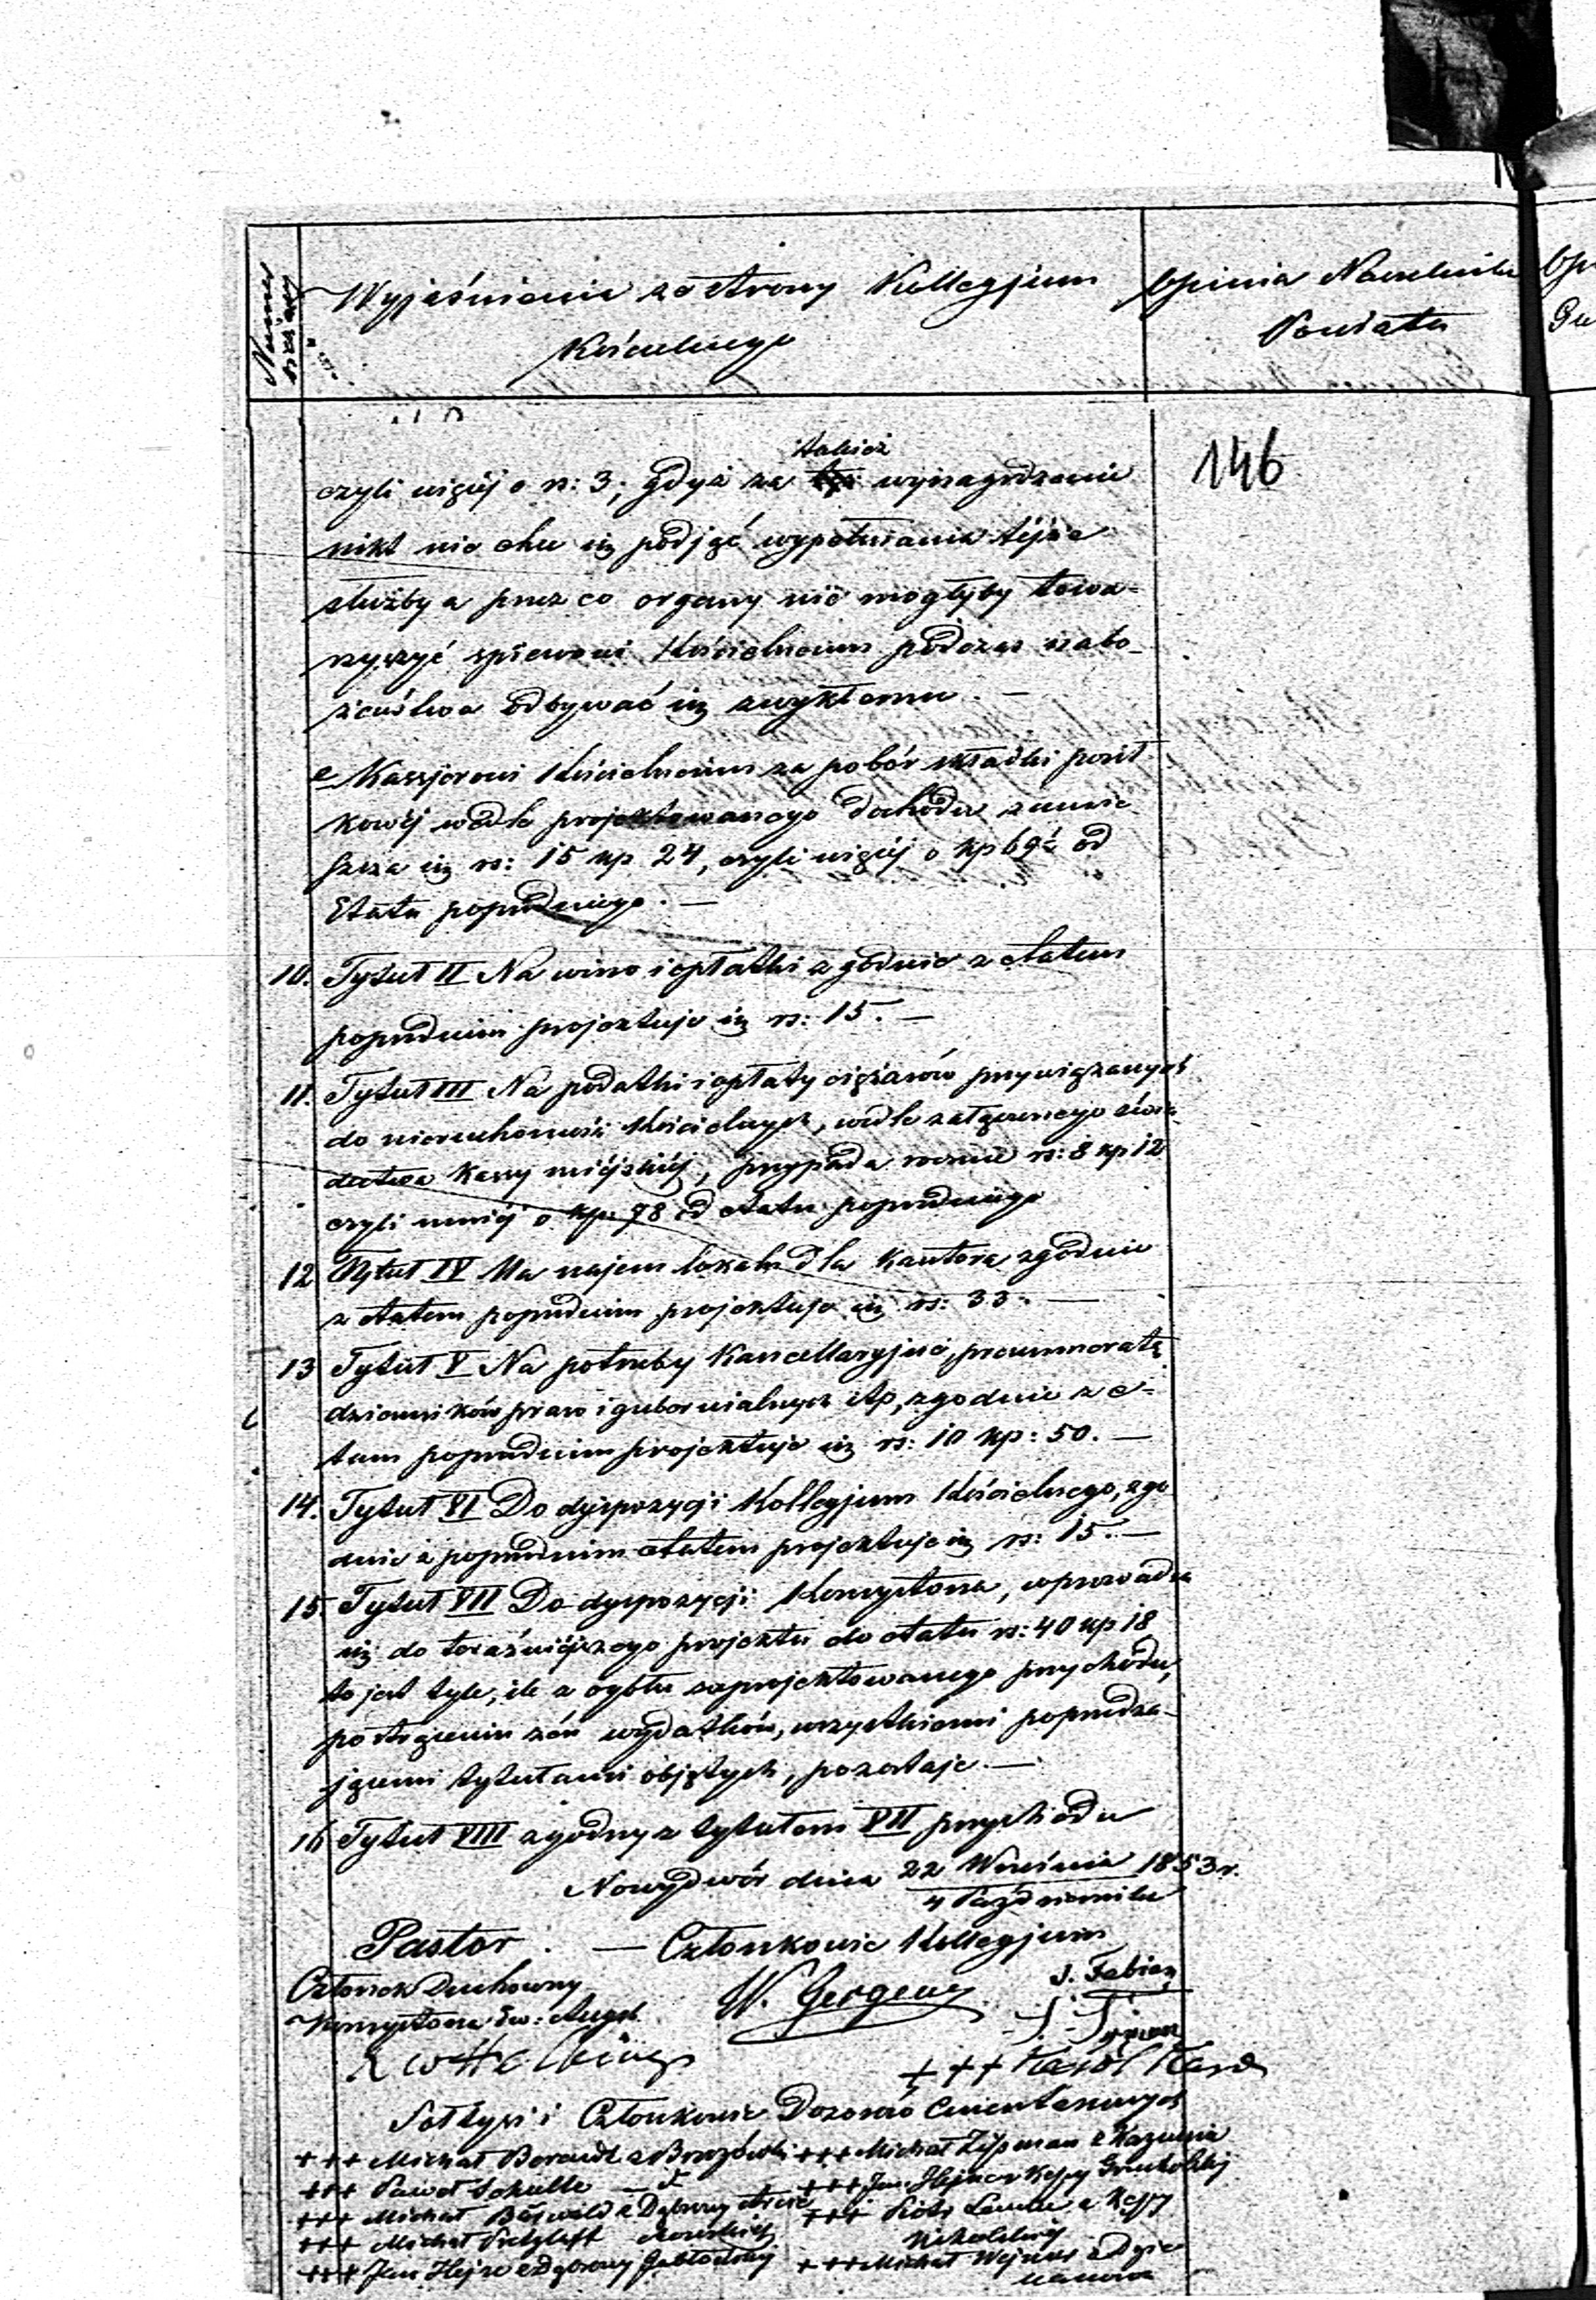 Numer
Wyjaśnienie ze strony Kollegjum
Kościelnego
Opinia Naczelnika
Powiatu
146
takież
czyli więcéj o rs: 3, gdyż za wynagrodzenie
nikt nie chce się podjąć wypełniania téjże
służby a przez co organy nie mogłyby towa-
rzyszyć śpiewowi Kościelnemu podczas nabo-
żeństwa odbywać się zwykłemu. —
e Kassjerowi Kościelnemu za pobór składki posił-
kowéj wedle projektowanego dochodu zamie-
szcza się rs: 15 kp 24, czyli więcéj o kp 69½ od
Etatu poprzedniego. —
10. Tytuł II Na wino i opłatki zgodnie z etatem
poprzednim projektuje się rs: 15. —
11. Tytuł III Na podatki i opłaty ciężarów przywiązanych
do nieruchomości Kościelnych, wedle załączonego świa-
dectwa Kassy miéjskiéj, przypada rocznie rs: 8 kp 12
czyli mniéj o kp: 78 od etatu poprzedniego
12 Tytuł IV Na najem lokalu dla Kantora zgodnie
z etatem poprzednim projektuje się rs: 33. —
13 Tytuł V Na potrzeby Kancellaryjne, prenumeratę
dzienników praw i gubernialnych itp, zgodnie z e-
tatem poprzednim projektuje się rs: 10 kp: 50. —
14. Tytuł VI Do dyspozycji Kollegjum Kościelnego, zgo-
dnie z poprzednim etatem projektuje się rs: 15. —
15. Tytuł VII Do dyspozycji Konsystorza, wprowadza
się do teraźniéjszego projektu do etatu rs: 40 kp 18
to jest tyle, ile z ogółu zaprojektowanego przychodu,
po strąceniu zeń wydatków, wszystkiemi poprzedza-
jącemi tytułami objętych, pozostaje. —
16 Tytuł VIII zgodny z tytułem VII przychodu
Nowydwór dnia 22 Września 1853 r.
4 Października
Pastor. — Członkowie Kollegjum
Członek Duchowny
Konsystorza Ew: Augsb.
W. Gergens
J. Fabian
+++ Karol
Sołtysi i Członkowie Dozorów Cmentarnych
+++ Michał Berendt z Brzozówki
+++ Michał Lipman z Kazunia
+++ Paweł Schulke — d
+++ Jan Hejne z Kępy
+++ Michał z Dąbrowy
+++ Piotr z Kępy
Nikolskiéj
+++ Michał Pretzlaff
+++ Jan Hejze z Dąbrowy
+++ Michał Wejner z Dzie-
kanowa